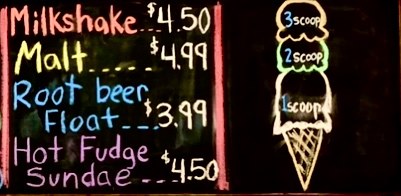 Milkshake...$4.50
Malt......$4.99
Root beer
Float---$3.99
Hot Fudge
Sundae---$4.50
3 scoop
2 scoop
1 scoop